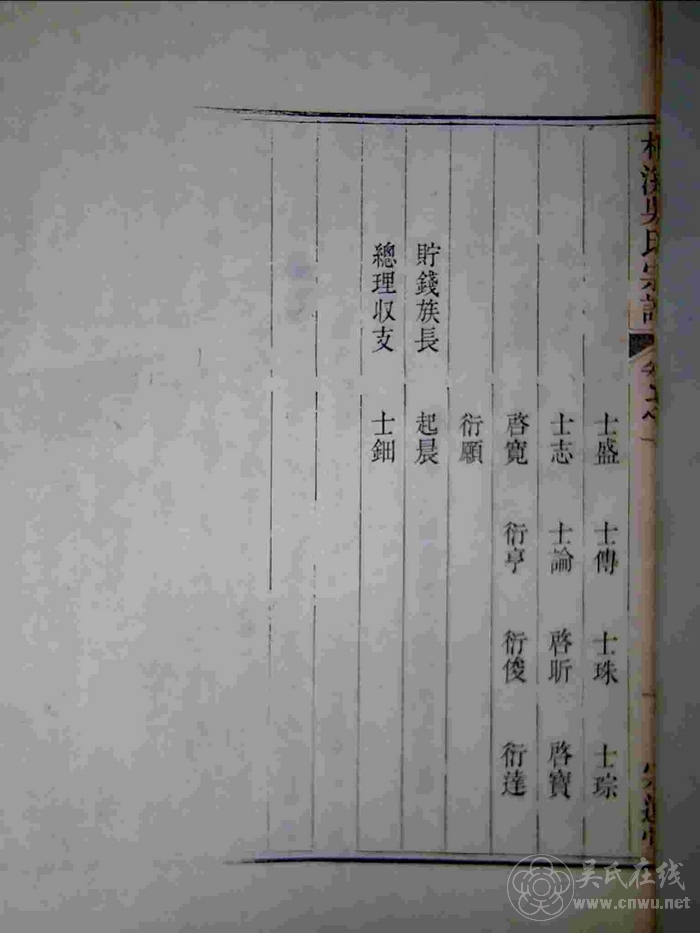 吳氏宗譜
士盛 士傳 士珠 士琮
士志 士論 啓昕 啓寶
啓寬 衍亨 衍俊 衍達
衍願
貯錢族長 起晨
總理收支 士鈿
吴氏在线
www.cnwu.net